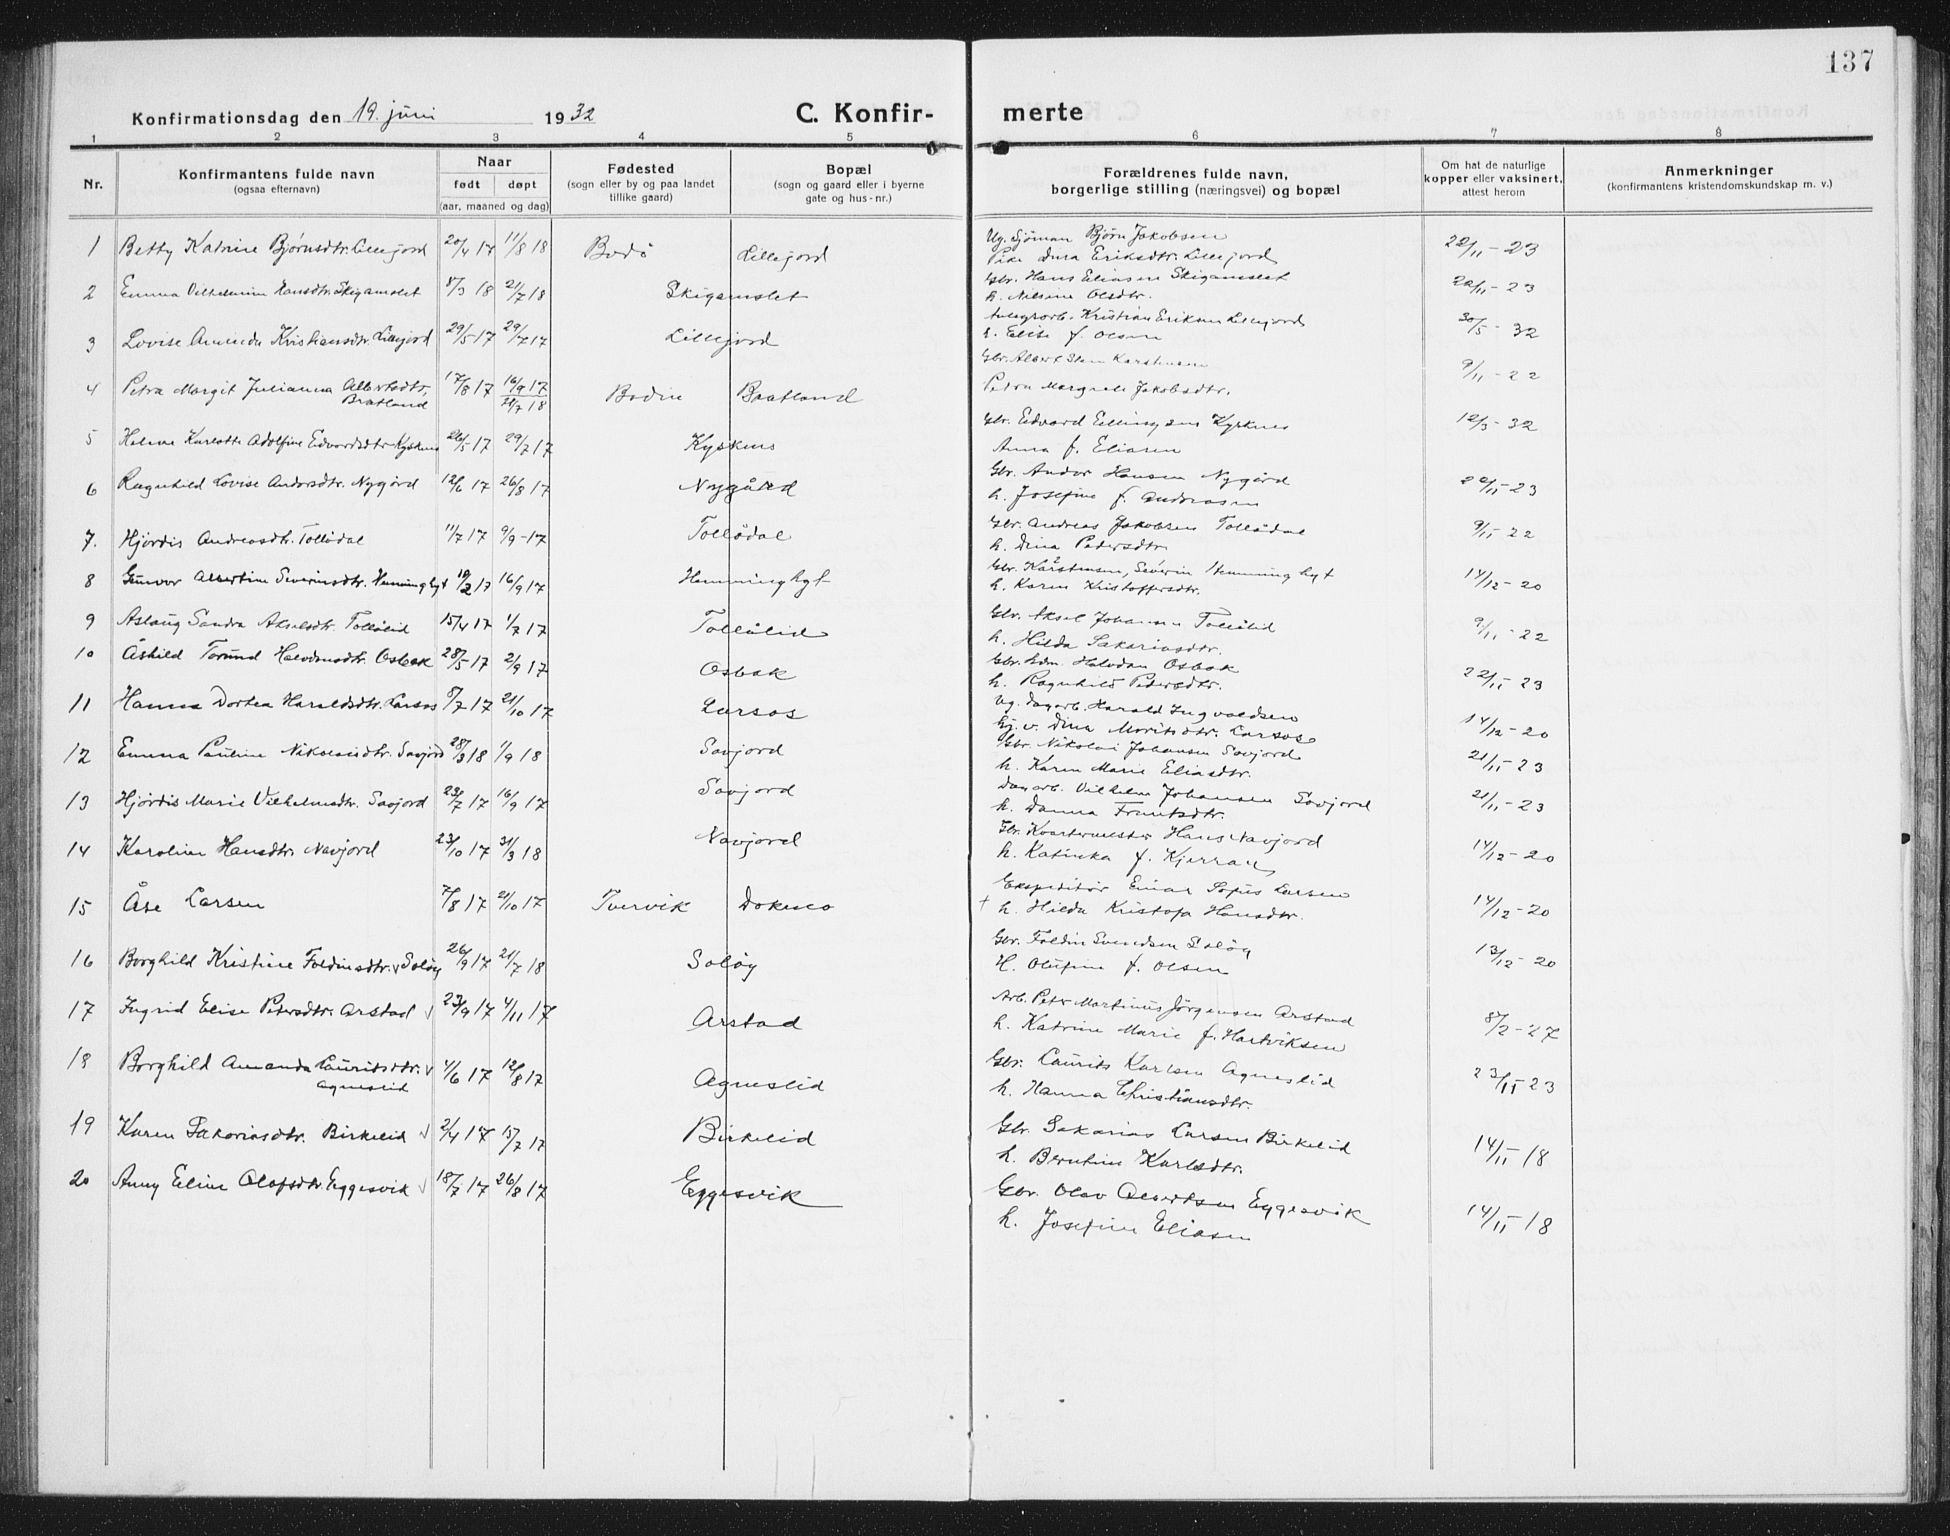 137
Konfirmationsdag den 19. juni 1932 C. Konfirmerte
1 2 3 4 5 6 7 8
Nr. Konfirmantens fulde navn (ogsaa efternavn) Naar født døpt (aar, maaned og dag) Fødested (sogn eller by og paa landet tillike gaard) Bopæl (sogn og gaard eller i byerne gate og hus-nr.) Forældrenes fulde navn, borgerlige stilling (næringsvei) og bopæl Om hat de naturlige kopper eller vaksinert, attest herom Anmerkninger (konfirmantens kristendomskundskap m. v.)
1 Betty Katrine Bjørnsdtr. Lillejord 20/4 17 11/8 18 Bodø Lillejord Ug. Sjöman Björn Jakobsen
Pike Dina Eriksdtr. Lillejord 22/11-23
2 Emma Vilhelmine Hansdtr. Skigamslet 8/3 18 21/7 18 Skigamslet Gbr. Hans Eliassen Skigamslet
h. Nilsine Olsdtr. 22/11-23
3 Lovise Aminda Kristiansdtr. Lillejord 29/5 17 29/7 17 Lillejord Kristian Eriksen Lillejord
h. Elise f. Olsen 30/5-32
4 Petra Margit Julianna Albertsdtr. Bratland 17/8 17 16/9 17 21/7 18 Bodin Bratland Gbr. Albert Sten Karstensen
Petra Margrete Jakobsdtr. 9/11-22
5 Helene Karlotte Adolfine Edvardsdtr. Kysknes 26/5 17 29/7 17 Kysknes Gbr. Edvard Ellingsen Kysknes
Anna f. Eliasen 12/3-32
6 Ragnhild Lovise Andorsdtr. Nygård 12/6 17 26/8 17 Nygård Gbr. Andor Hansen Nygård
h. Josefine f. Andreasen 22/11-23
7. Hjördis Andreasdtr. Tollådal 11/7 17 9/9-17 Tollådal Gbr. Andreas Jakobsen Tollådal
h. Dina Petersdtr 9/11-22
8 Gunvor Albertine Severinsdtr. Hemminghyt 10/2 17 16/9 17 Hemminghyt Gbr. Karstensen, Severin Hemminghyt
h. Karen Kristoffersdtr. 14/12-20
9 Aslaug Sandra Akselsdtr. Tollålid 15/4 17 1/7 17 Tollålid Gbr. Aksel Johansen Tollålid
h. Hilda Sakariasdtr. 9/11-22
10 Åshild Torund Halvdansdtr. Osbak 28/5 17 2/9 17 Osbak Gbr. Edm. Halvdan Osbak
h. Ragnhild Pedersdtr. 22/11-23
11 Hanna Dortea Haraldsdtr. Larsos 8/7 17 21/10 17 Larsos Ug. dagarb. Harald Ingvaldsen
Gj. v. Dina Moritsdtr. Larsos 14/12-20
12 Emma Pauline Nikolaisdtr. Savjord 28/3 18 1/9 18 Savjord Gbr. Nikolai Johansen Savjord
h. Karen Marie Eliasdtr. 21/11-23
13 Hjördis Marie Vilhelmsdtr. Savjord 23/7 17 16/9 17 Savjord Dagarb. Vilhelm Johansen Savjord
h. Danna Frantsdtr. 21/11-23
14 Karoline Hansdtr. Navjord 23/10 17 31/3 18 Navjord Gbr. Kvartermester Hans Navjord
h. Katinka f. Kjerran 14/12-20
15 Åse Larsen 7/8 17 21/10 17 Tvervik Dokmo Ekspeditör Einar Sofus Larsen
+ h. Hilda Kristofa Hansdtr. 14/12-20
16 Borghild Kristine Foldinsdtr. v Solöy 26/9 17 21/7 18 Solöy Gbr. Foldin Svendsen Solöy
H. Olufine f. Olsen 13/12-20
17 Ingrid Elise Petersdtr. Arstad v 23/9 17 4/11 17 Arstad Arb. Petr Martinus Jörgensen Arstad
h. Katrine Marie f. Hartviksen 8/2-27
18 Borghild Amanda Lauritsdtr. v Agneslid 4/6 17 12/8 17 Agneslid Gbr. Laurits Karlsen Agneslid
h. Hanna Christiansdtr. 23/11-23
19 Karen Sakariasdtr. Birkelid v 2/4 17 15/7 17 Birkelid Gbr. Sakarias Larsen Birkelid
h. Berntine Karlsdtr. 14/11-18
20 Anny Eline Olofsdtr. Eggesvik v 18/7 17 26/8 17 Eggesvik Gbr. Olav Albertsen Eggesvik
h. Josefine Eliasen 14/11-18